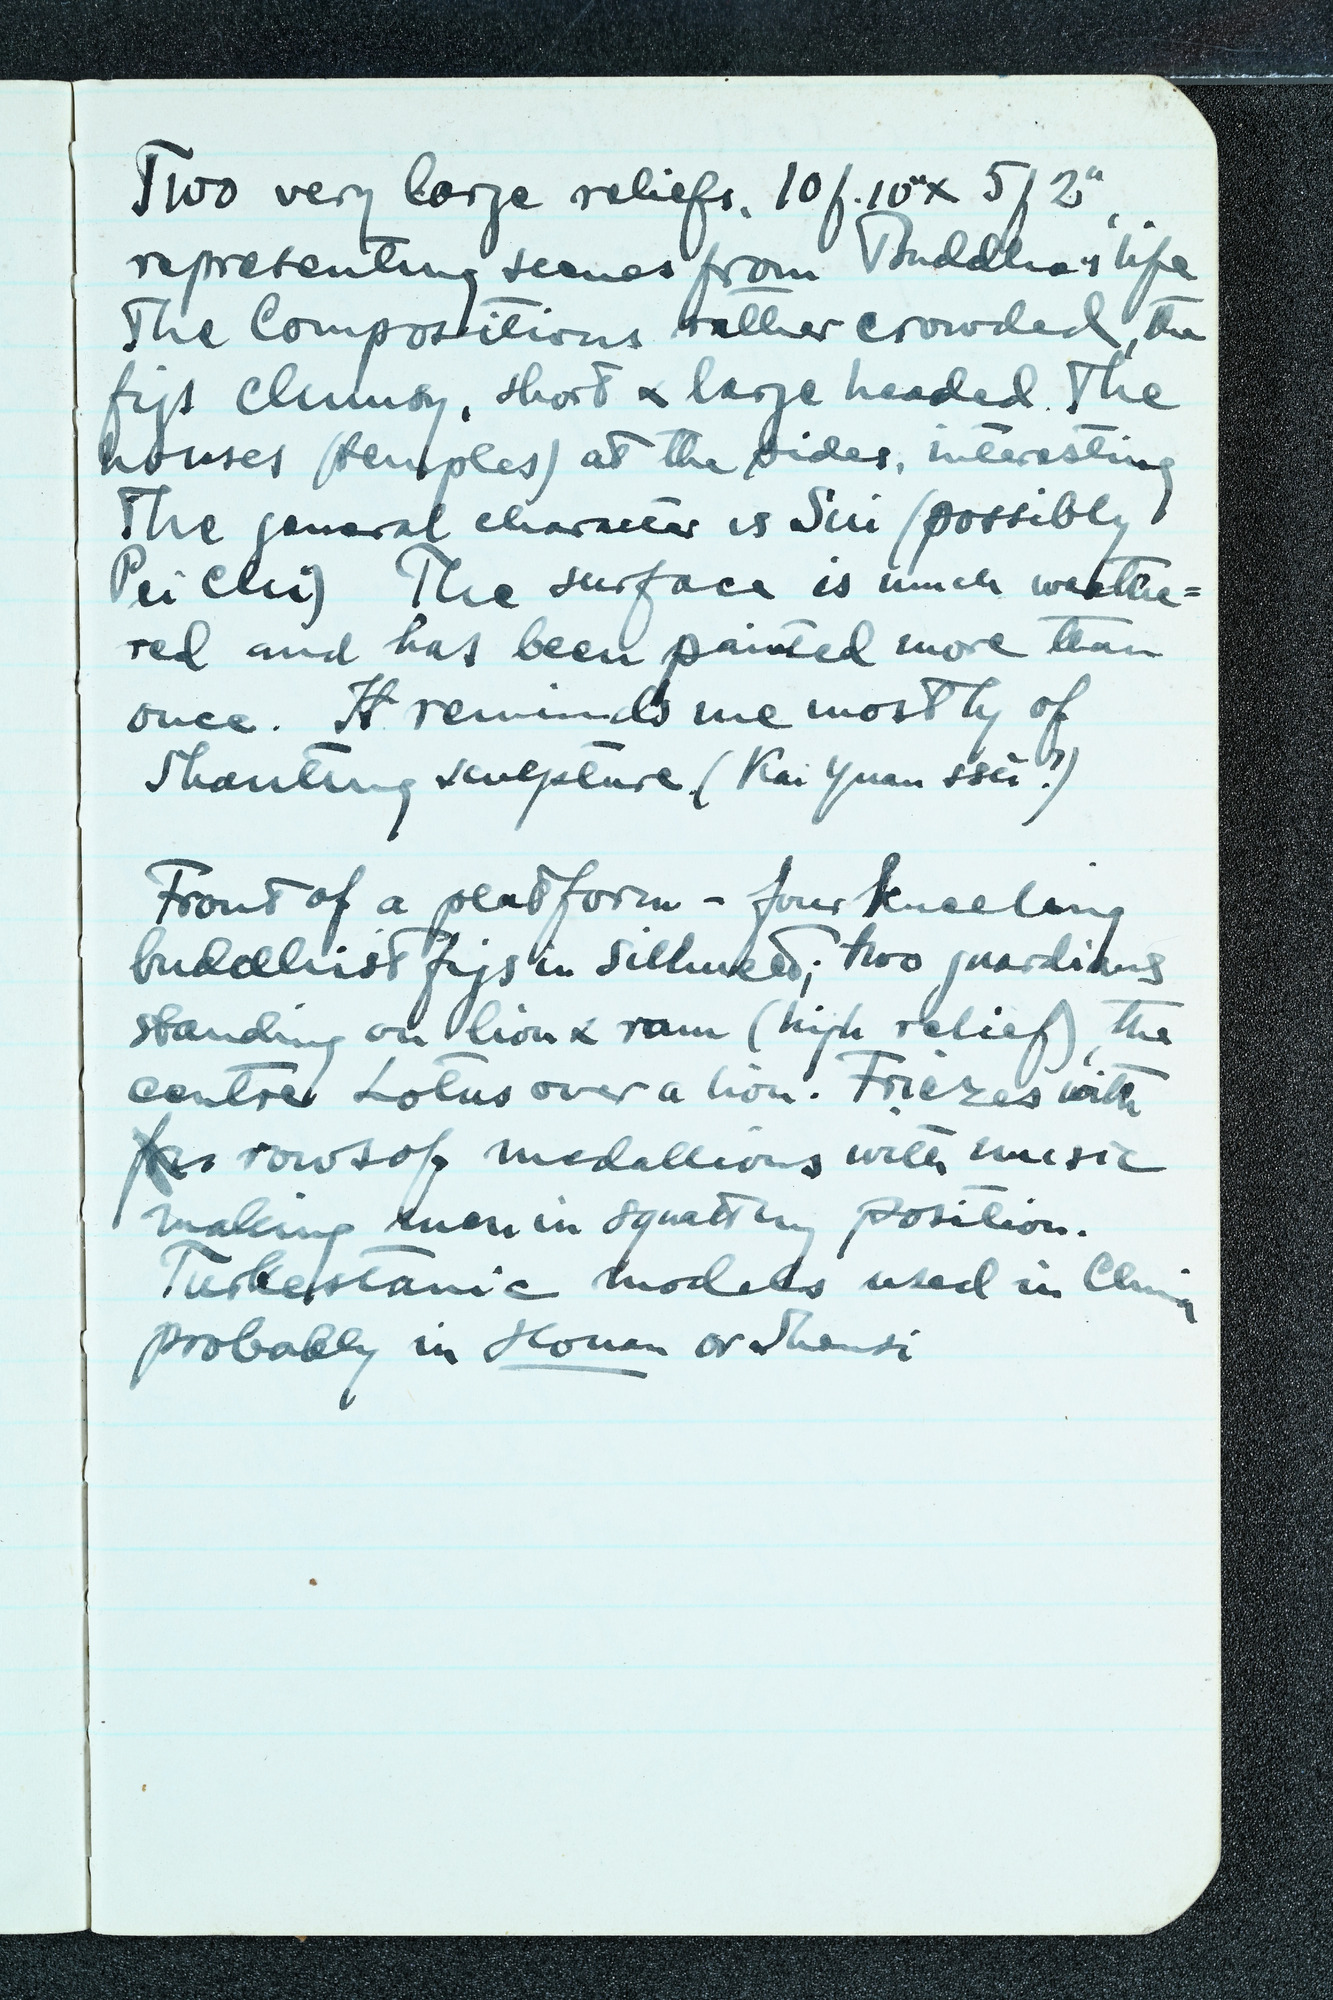 Two very large reliefs. 10f.10"x 5f 2"
representing scenes from Buddha's life
The Compositions rather crowded, the
figs clumsy, short & large headed. The
houses (temples) at the sides, interesting
The general character is Sui (possibly
Pei Chi) The surface is much weathe=
red and has been painted more than
once. It reminds me mostly of
Shantung sculpture. (Kai Yuan ssu?)
Front of a platform - four kneeling
buddhist figs in silhuett; two guardians
standing on lion & ram (high relief), the
centre Lotus over a lion. Friezes with
rows of medallions with music
making men in squatting position.
Turkestanic models used in China
probably in Honan or Shensi